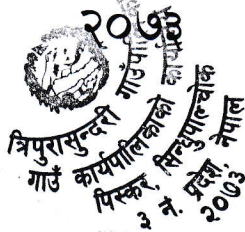 २०७३
त्रिपुरासुन्दरी गाउँपालिका
गाउँ कार्यपालिकाको कार्यालय
पिस्कर, सिन्धुपाल्चोक
३ नं. प्रदेश, नेपाल
२०७३